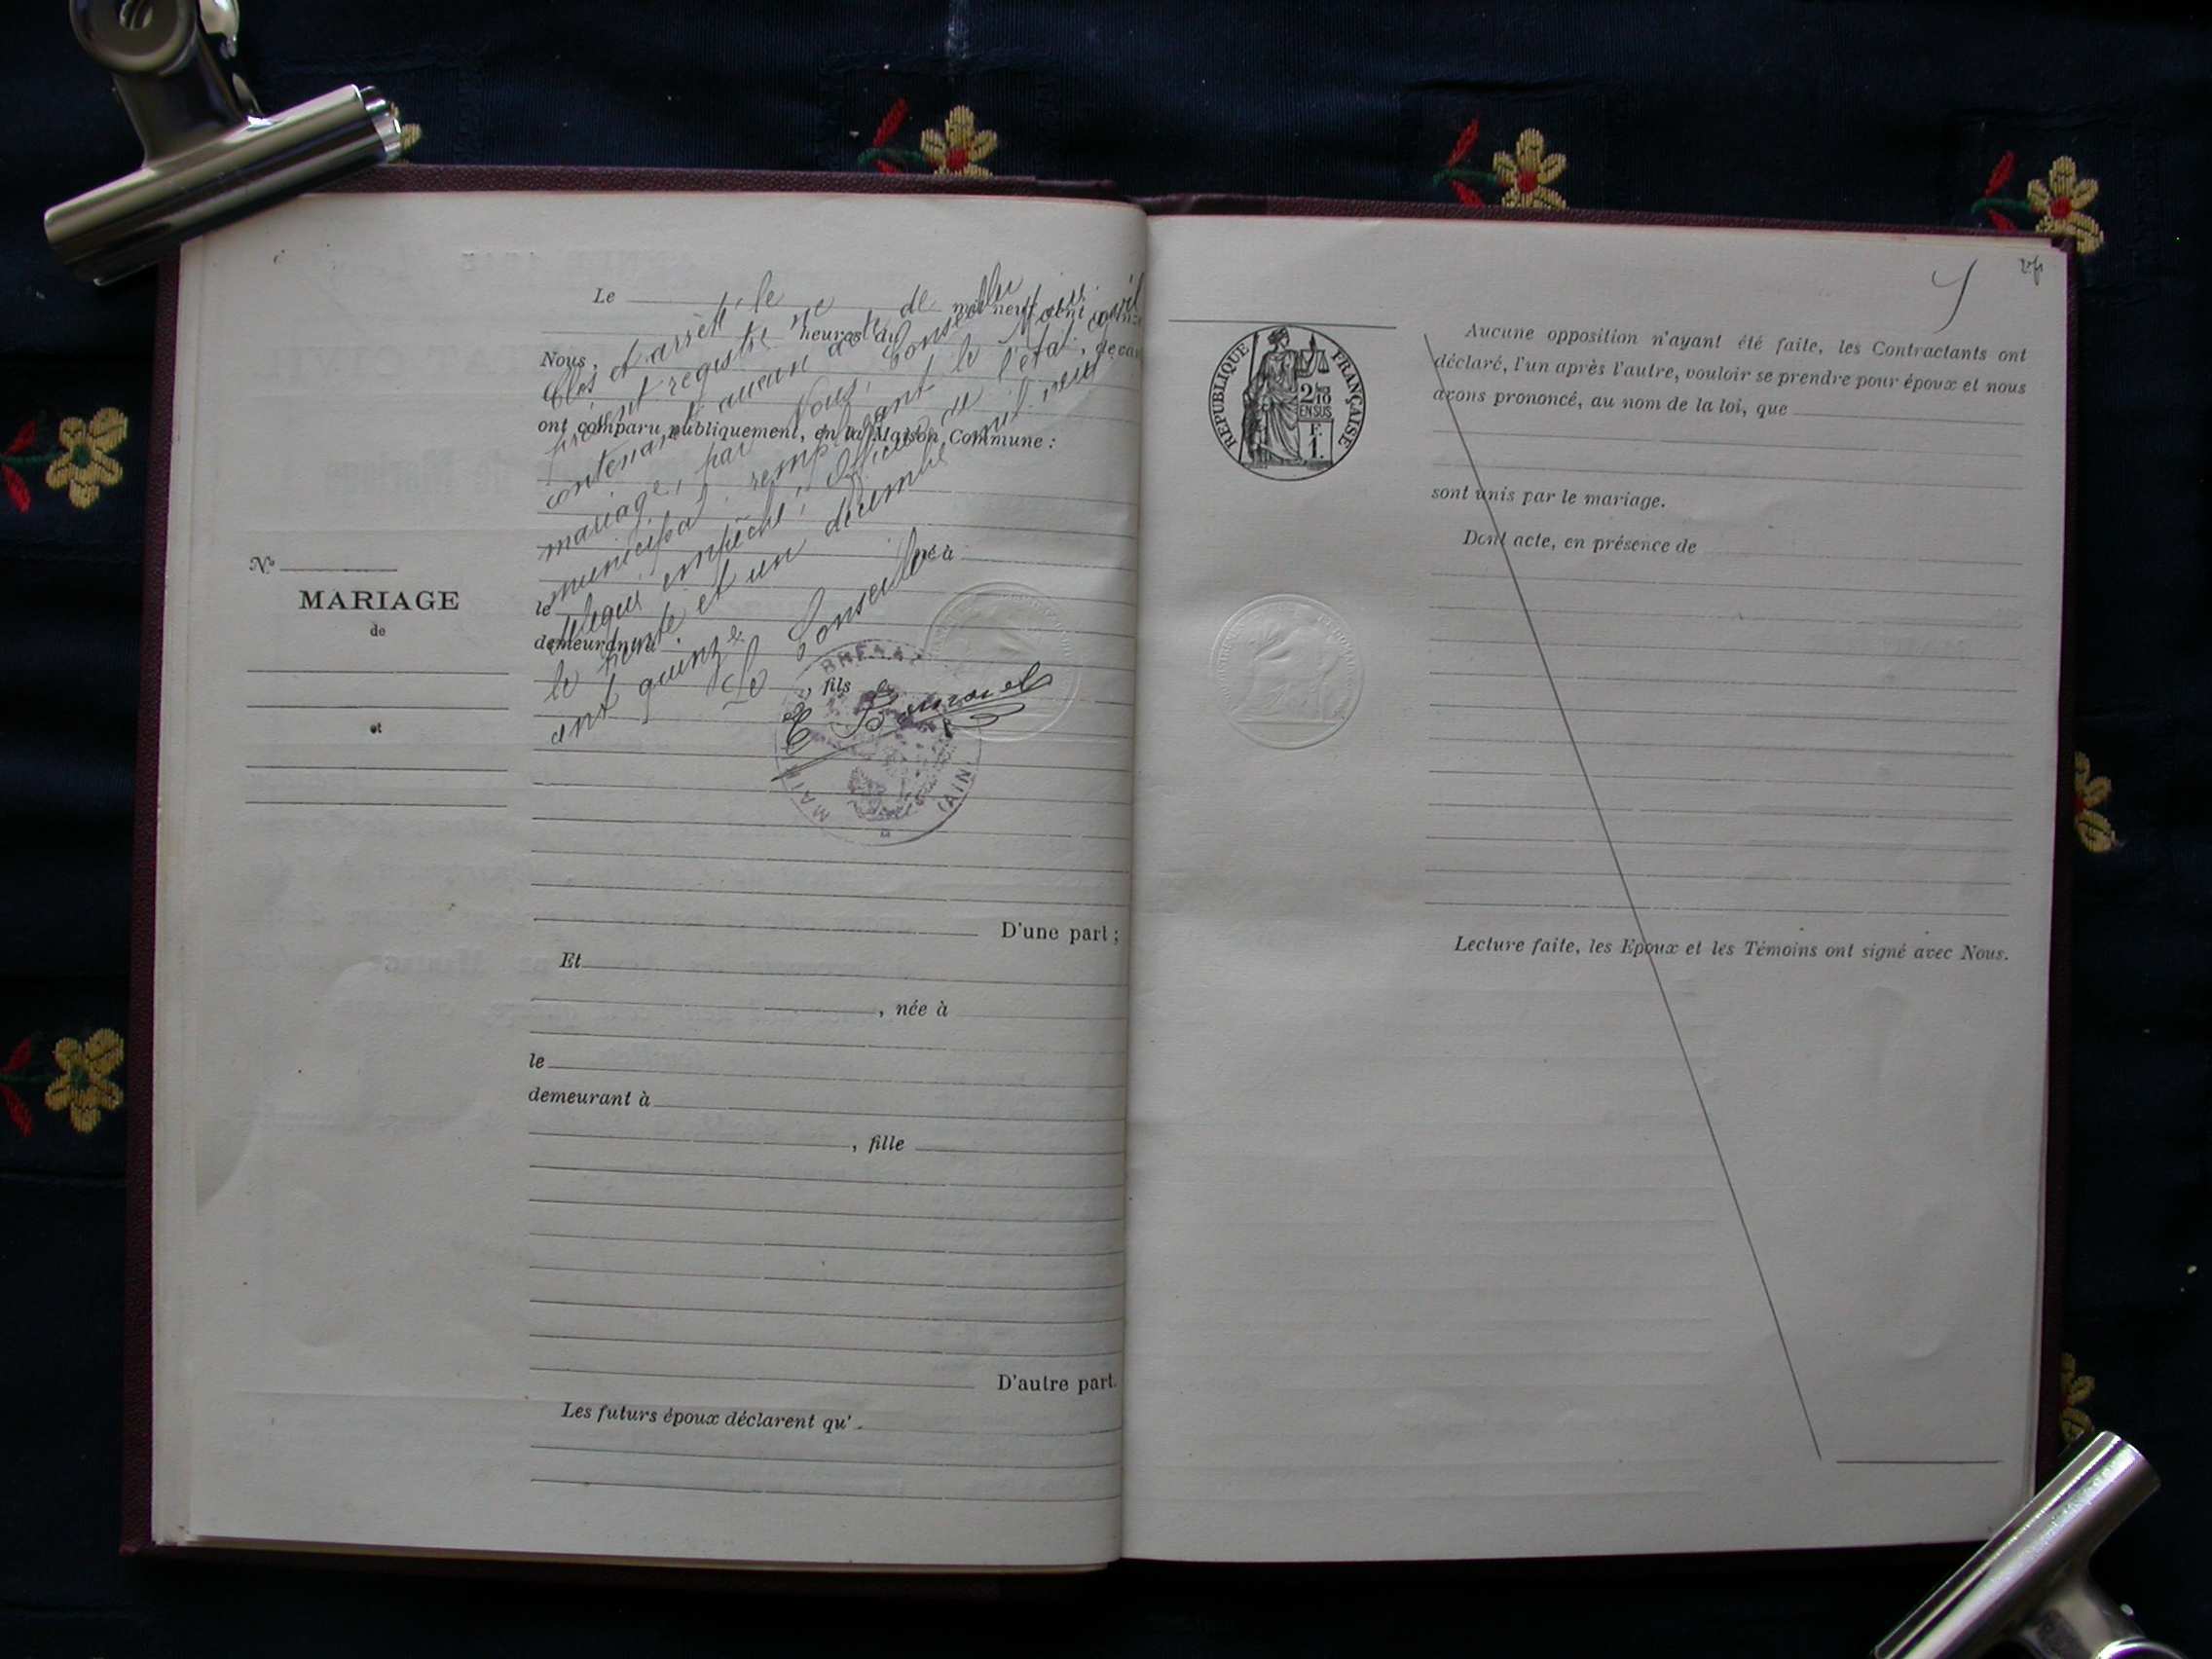 Le
mil neuf cent quinze
heures du
Nous,
ont comparu publiquement, en la Maison Commune :
Clos et arrêté, le
présent registre ne
contenant aucun acte de
mariage, par Nous, Conseiller
municipal, remplaçant le Maire
empêché, officier de l'état civil,
le trente et un décembre mil neuf
cent quinze
Le Conseiller
né à
le
demeurant à
, fils
MAIRIE
(AIN)
N°
MARIAGE
de
et
D'une part ;
Et
, née à
le
demeurant à
, fille
D'autre part.
Les futurs époux déclarent qu'
RÉPUBLIQUE FRANÇAISE
2/10
EN SUS
F.
1.
Aucune opposition n'ayant été faite, les Contractants ont
déclaré, l'un après l'autre, vouloir se prendre pour époux et nous
avons prononcé, au nom de la loi, que
sont unis par le mariage.
Dont acte, en présence de
Lecture faite, les Epoux et les Témoins ont signé avec Nous.